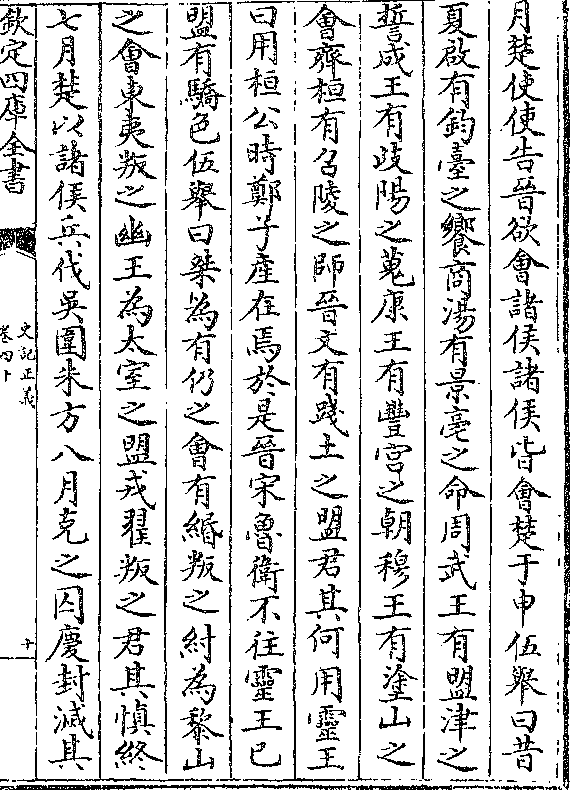 月楚使使告晉欲會諸侯諸侯皆會楚于申伍舉曰昔
夏啟有鈞臺之饗商湯有景亳之命周武王有盟津之
誓成王有歧陽之蒐康王有豐宮之朝穆王有塗山之
會齊桓有召陵之師晉文有踐土之盟君其何用靈王
曰用桓公時鄭子產在焉於是晉宋魯衛不往靈王已
盟有驕色伍舉曰桀為有仍之會有緡叛之紂為黎山
之會東夷叛之幽王為太室之盟戎翟叛之君其慎終
七月楚以諸侯兵伐吳圍朱方八月克之囚慶封滅其
欽定四庫全書
史記正義
卷四十
十